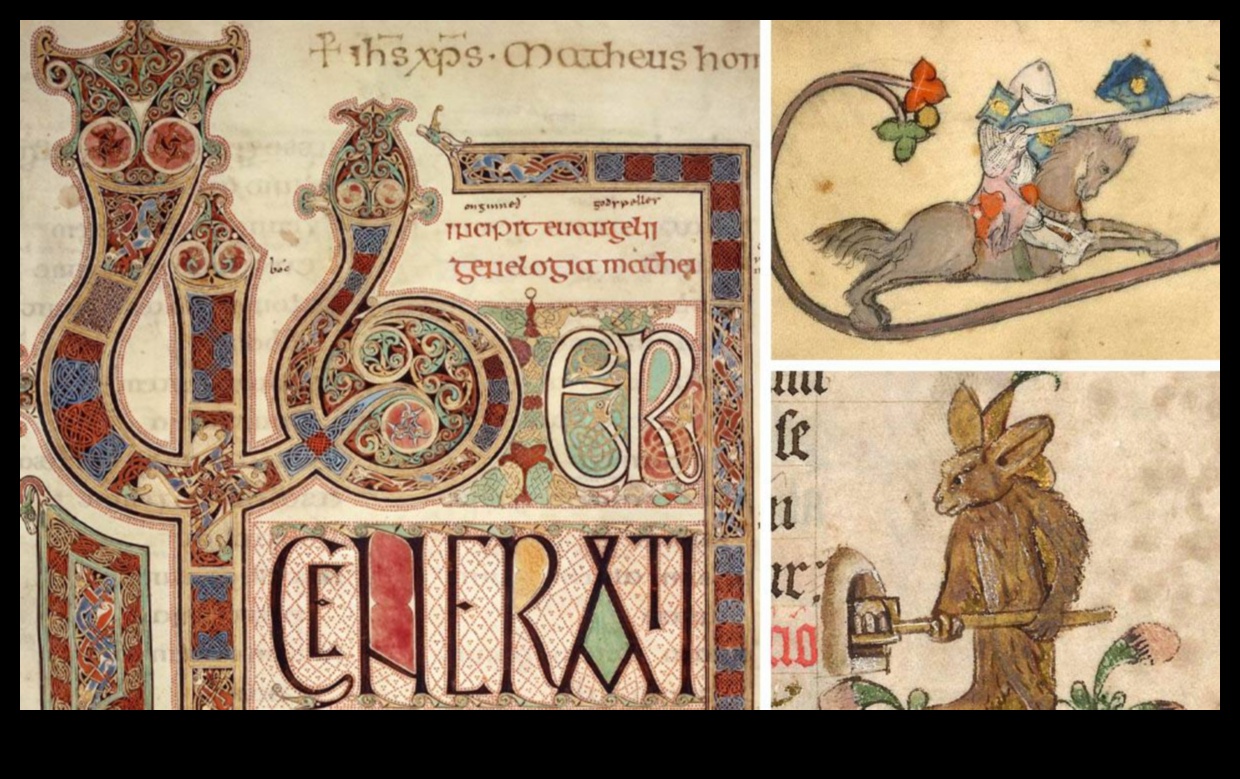 ☩ ihs xps · Matheus hom
onginneð godspelles
incipit euangelii
boc
genelogia mathei
LIBER
GENERATI
se